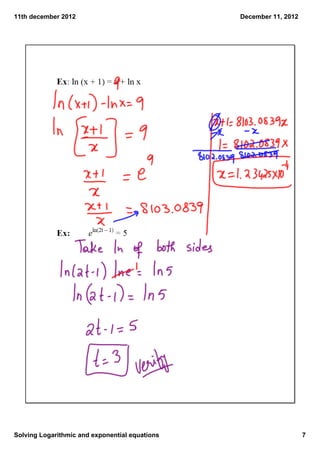 11th december 2012
December 11, 2012
Ex: ln (x + 1) = 9 + ln x
ln(x+1) - ln x = 9
ln [x+1 / x] = 9
x+1 / x = e^9
x+1 / x = 8103.0839
x+1 = 8103.0839x
-x -x
1 = 8102.0839x
8102.0839 8102.0839
x = 1.23425x10^-4
Ex: e^ln(2t – 1) = 5
Take ln of both sides
ln(2t-1) lne^1 = ln5
ln(2t-1) = ln5
2t-1 = 5
t=3 verify
Solving Logarithmic and exponential equations
7